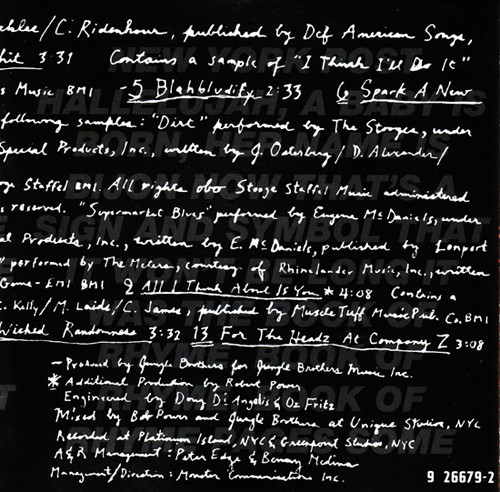 /C. Ridenhour, published by Def American Songs,
3:31 Contains a sample of "I Think I'll Do It"
Music BMI -5 Blahbludify 2:33 6 Spark A New
following samples: "Dirt" performed by The Stooges, under
Special Products, Inc., written by J. Osterberg/D. Alexander/
Staffel BMI. All rights obo Stooge Staffel Music administered
reserved. "Supermarket Blues" performed by Eugene McDaniels, under
Products, Inc., written by E. McDaniels, published by Lonport
performed by The Meters, courtesy of Rhinelander Music, Inc., written
-EMI BMI 9 All I Think About Is You * 4:08 Contains a
Kelly/M. Laids/C. James, published by Muscle Tuff Music Pub. Co. BMI
Wicked Randomness 3:32 13 For The Headz At Company Z 3:08
- Produced by Jungle Brothers for Jungle Brothers Music Inc.
* Additional Production by Robert Power
Engineered by Doug DiAngelis & Oz Fritz
Mixed by Bob Power and Jungle Brothers at Unique Studios, NYC
Recorded at Platinum Island, NYC & Greenpoint Studios, NYC
A&R Management: Peter Edge & Benny Medina
Management/Direction: Monster Communications Inc.
9 26679-2
NEW YORK POST
HALLELUJAH, A BABY IS
BORN, HER NAME IS
BIJON NOW THAT'S A
SIGN AND SYMBOL THAT
BOOK OF
BOOK OF
SOME